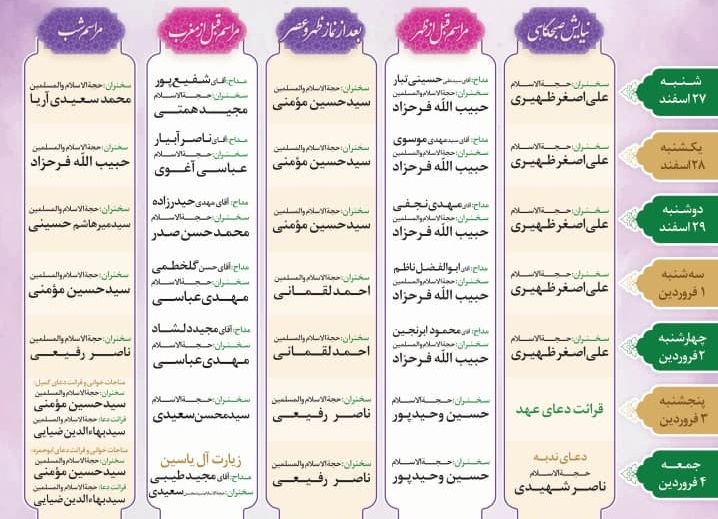 نیایش صبحگاهی
مراسم قبل از ظهر
بعد از نماز ظهر و عصر
مراسم قبل از مغرب
مراسم شب
شنبه
۲۷ اسفند
سخنران: حجة‌الاسلام
علی اصغر ظهیری
مداح: آقای سیدعلی حسینی تبار
سخنران: حجة‌الاسلام والمسلمین
حبیب اللّه فرحزاد
سخنران: حجة‌الاسلام والمسلمین
سیدحسین مؤمنی
مداح: آقای شفیع‌پور
سخنران: حجة‌الاسلام
مجید همتی
سخنران: حجة‌الاسلام والمسلمین
محمد سعیدی آریا
یکشنبه
۲۸ اسفند
سخنران: حجة‌الاسلام
علی اصغر ظهیری
مداح: آقای سیدمهدی موسوی
سخنران: حجة‌الاسلام والمسلمین
حبیب اللّه فرحزاد
سخنران: حجة‌الاسلام والمسلمین
سیدحسین مؤمنی
مداح: آقای ناصر آبیار
سخنران: حجة‌الاسلام
عباسی آغوی
سخنران: حجة‌الاسلام والمسلمین
حبیب اللّه فرحزاد
دوشنبه
۲۹ اسفند
سخنران: حجة‌الاسلام
علی اصغر ظهیری
مداح: آقای مهدی نجفی
سخنران: حجة‌الاسلام والمسلمین
حبیب اللّه فرحزاد
سخنران: حجة‌الاسلام والمسلمین
سیدحسین مؤمنی
مداح: آقای مهدی حیدرزاده
سخنران: حجة‌الاسلام
محمدحسن صدر
سخنران: حجة‌الاسلام والمسلمین
سیدمیرهاشم حسینی
سه شنبه
۱ فروردین
سخنران: حجة‌الاسلام
علی اصغر ظهیری
مداح: آقای ابوالفضل ناظم
سخنران: حجة‌الاسلام والمسلمین
حبیب اللّه فرحزاد
سخنران: حجة‌الاسلام والمسلمین
احمد لقمانی
مداح: آقای حسن گلخطمی
سخنران: حجة‌الاسلام
مهدی عباسی
سخنران: حجة‌الاسلام والمسلمین
سیدحسین مؤمنی
چهارشنبه
۲ فروردین
سخنران: حجة‌الاسلام
علی اصغر ظهیری
مداح: آقای محمود ابرنجین
سخنران: حجة‌الاسلام والمسلمین
حبیب اللّه فرحزاد
سخنران: حجة‌الاسلام والمسلمین
احمد لقمانی
مداح: آقای مجید دلشاد
سخنران: حجة‌الاسلام
مهدی عباسی
سخنران: حجة‌الاسلام والمسلمین
ناصر رفیعی
پنجشنبه
۳ فروردین
قرائت دعای عهد
سخنران: حجة‌الاسلام
حسین وحیدپور
سخنران: حجة‌الاسلام والمسلمین
ناصر رفیعی
سخنران: حجة‌الاسلام
سیدمحسن سعیدی
مناجات خوانی و قرائت دعای کمیل:
سخنران: حجة‌الاسلام والمسلمین
سیدحسین مؤمنی
قرائت دعا: حجة‌الاسلام والمسلمین
سیدبهاءالدین ضیایی
جمعه
۴ فروردین
دعای ندبه
حجة‌الاسلام
ناصر شهیدی
سخنران: حجة‌الاسلام
حسین وحیدپور
سخنران: حجة‌الاسلام والمسلمین
ناصر رفیعی
زیارت آل یاسین
مداح: آقای مجید طیبی
سخنران: حجة‌الاسلام سیدمحسن سعیدی
مناجات خوانی و قرائت دعای ابوحمزه:
سخنران: حجة‌الاسلام والمسلمین
سیدحسین مؤمنی
قرائت دعا: حجة‌الاسلام والمسلمین
سیدبهاءالدین ضیایی